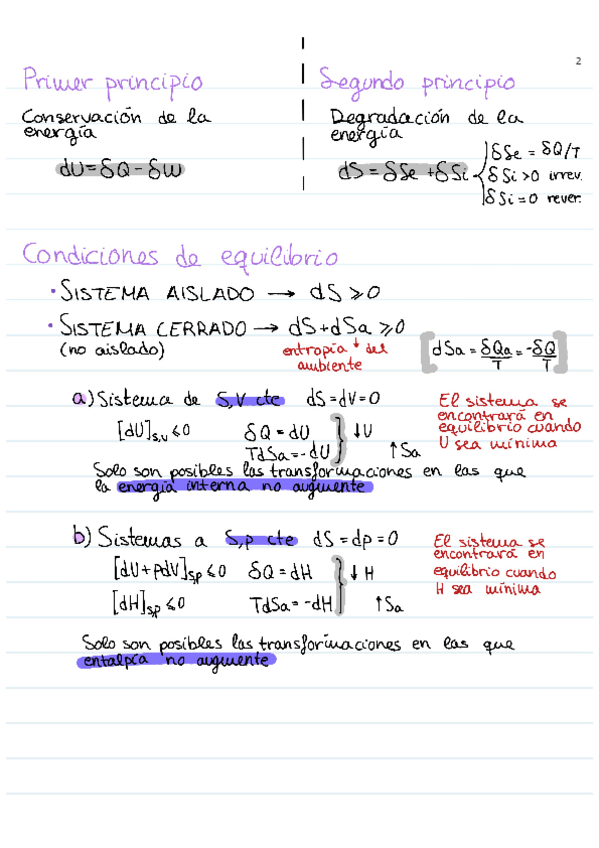 2
Primer principio
Conservación de la
energía
dU = δQ - δW
Segundo principio
Degradación de la
energía
dS = δSe + δSi
δSe = δQ/T
δSi > 0 irrev.
δSi = 0 rever.
Condiciones de equilibrio
• SISTEMA AISLADO → dS ≥ 0
• SISTEMA CERRADO → dS + dSa ≥ 0
(no aislado)
entropía ↓ del
ambiente
[dSa = δQa/T = -δQ/T]
a) Sistema de S,V cte dS = dV = 0
[dU]s,v ≤ 0 δQ = dU ↓U
TdSa = -dU ↑Sa
El sistema se
encontrará en
equilibrio cuando
U sea mínima
Solo son posibles las transformaciones en las que
la energía interna no augmente
b) Sistemas a S,p cte dS = dp = 0
[dU + pdV]sp ≤ 0 δQ = dH ↓H
[dH]sp ≤ 0 TdSa = -dH ↑Sa
El sistema se
encontrará en
equilibrio cuando
H sea mínima
Solo son posibles las transformaciones en las que
entalpía no augmente